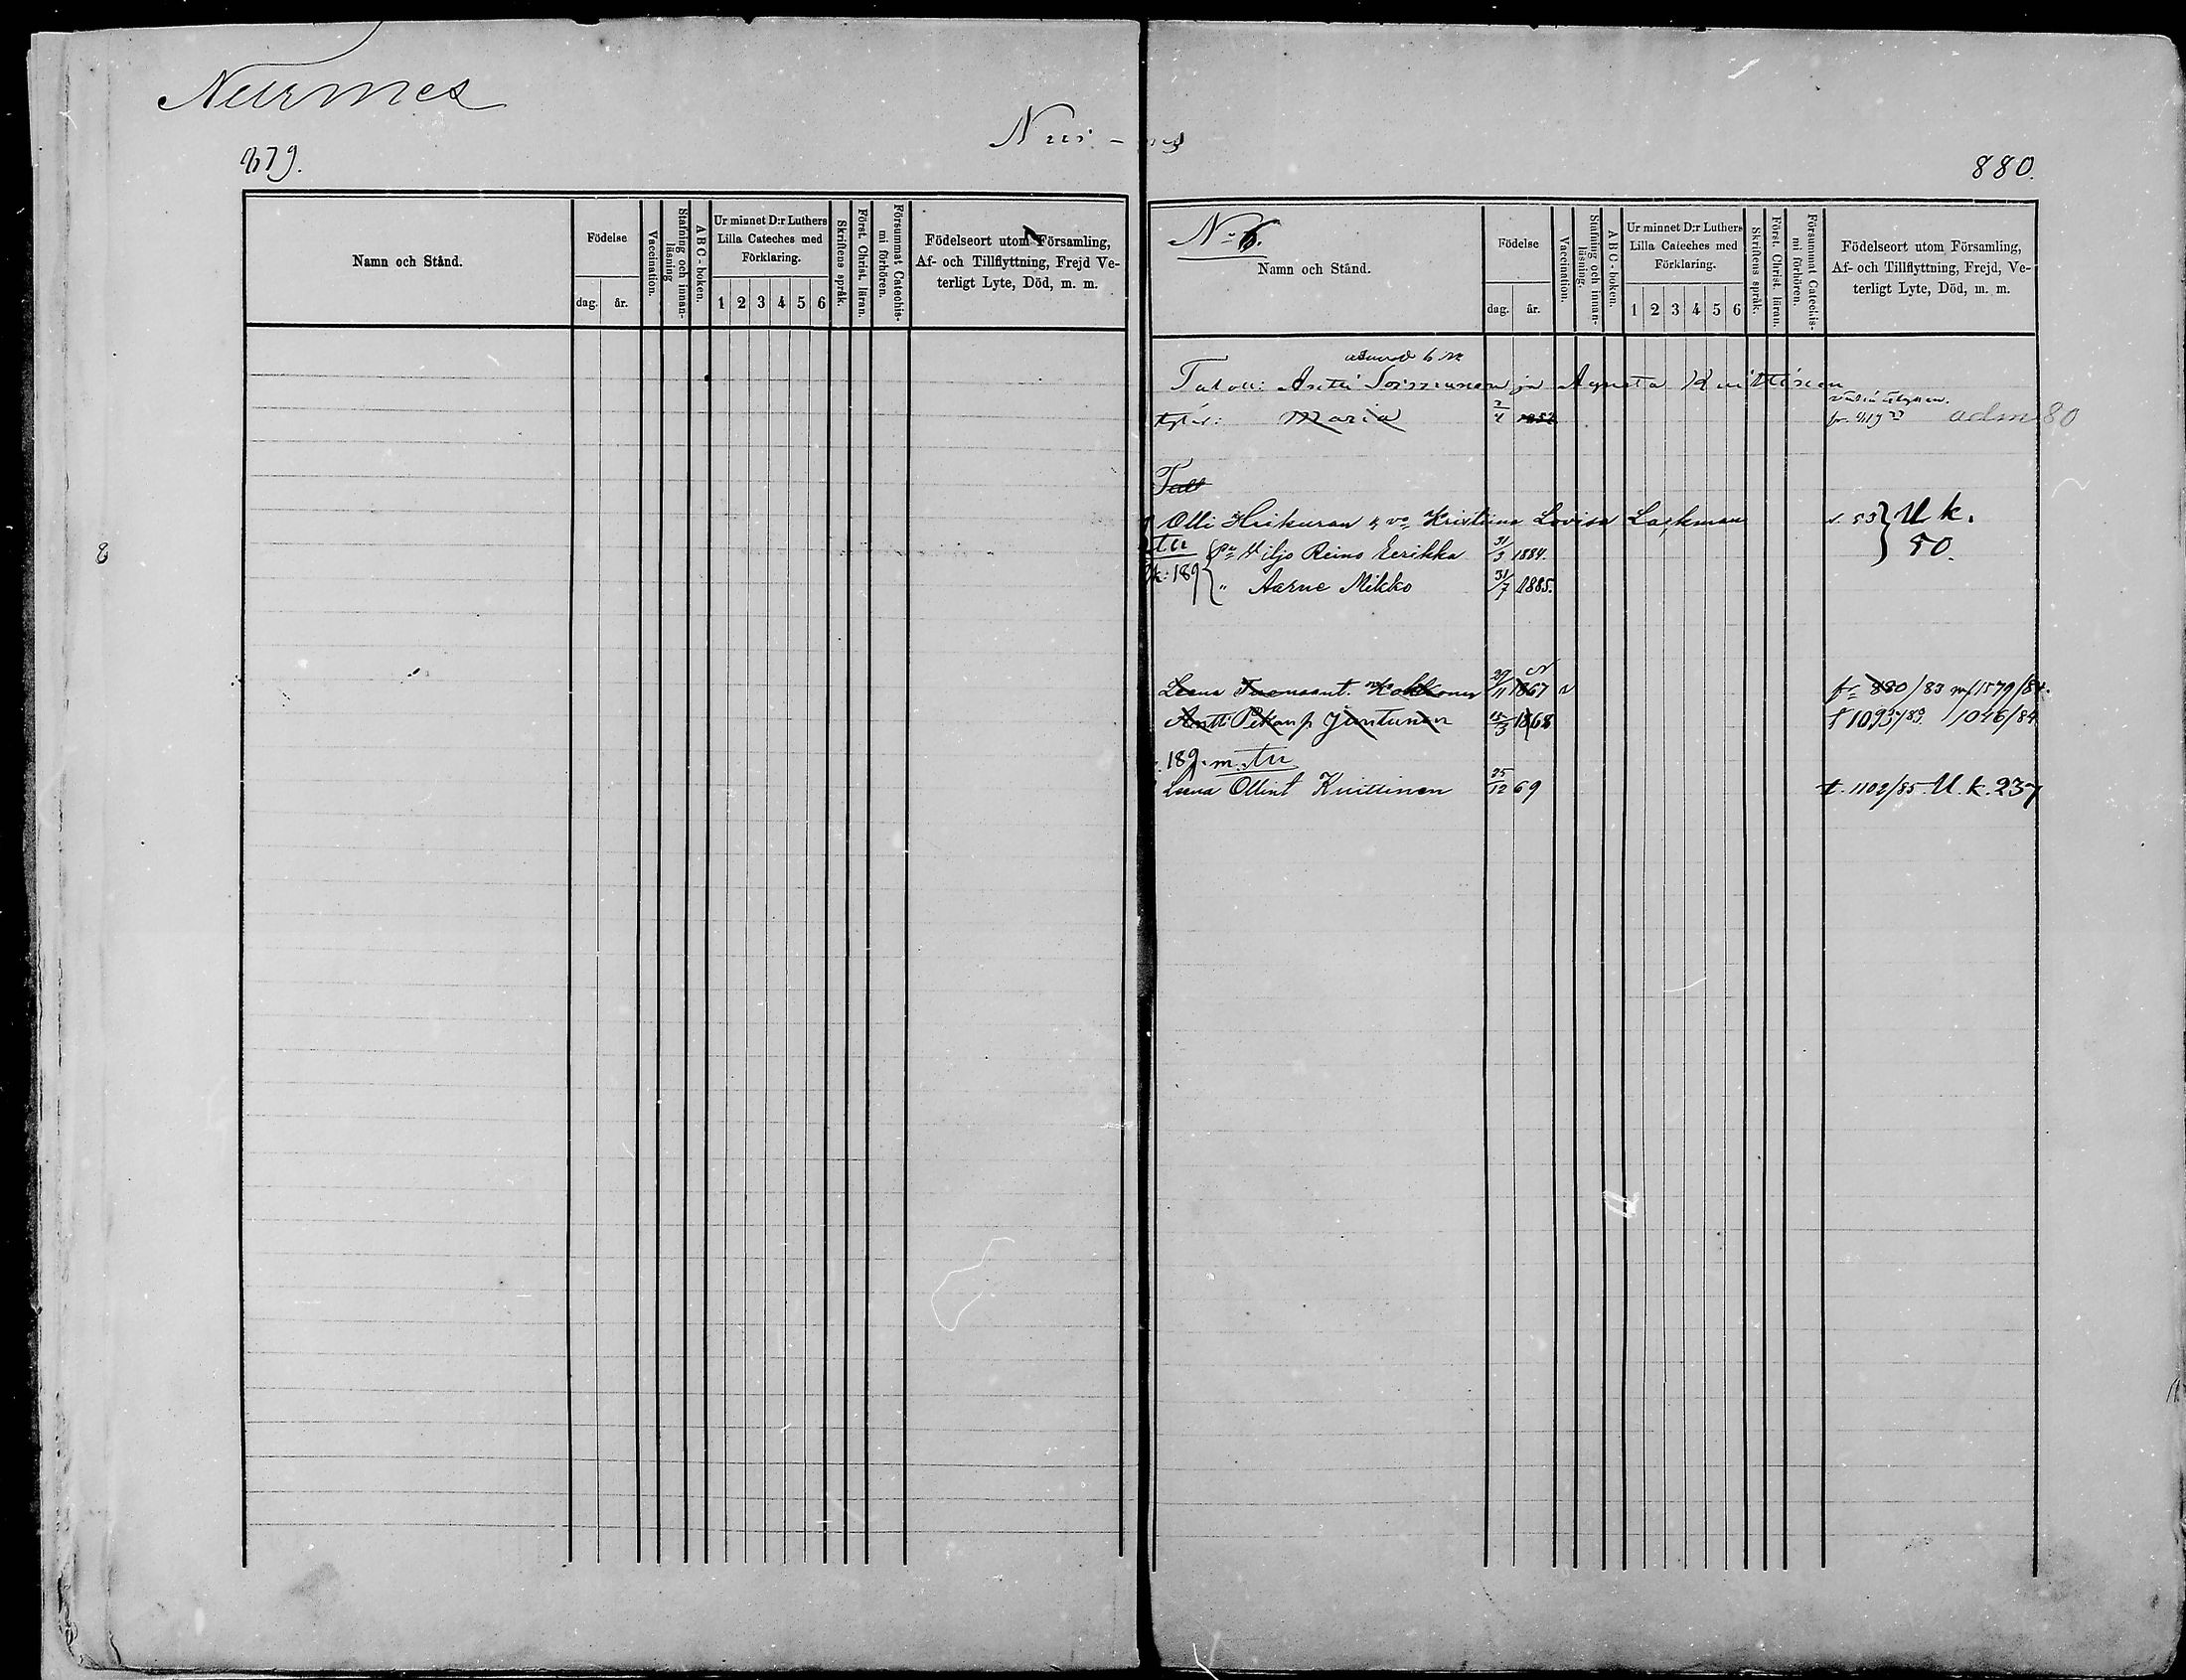 Nurmes
879.
Namn och Stånd.
Födelse
dag.
år.
Vaccination.
Stafning och innan-
läsning
A B C - boken.
Ur minnet D:r Luthers
Lilla Cateches med
Förklaring.
1 2 3 4 5 6
Skriftens språk.
Först. Christ. läran.
Försummat Catechis-
mi förhören.
Födelseort utom Församling,
Af- och Tillflyttning, Frejd Ve-
terligt Lyte, Död, m. m.
8
880.
N:o 6.
Namn och Stånd.
Födelse
dag.
år.
Vaccination.
Stafning och innan-
läsning.
A B C - boken.
Ur minnet D:r Luthers
Lilla Cateches med
Förklaring.
1 2 3 4 5 6
Skriftens språk.
Först. Christ. läran.
Försummat Catechis-
mi förhören.
Födelseort utom Församling,
Af- och Tillflyttning, Frejd, Ve-
terligt Lyte, Död, m. m.
Antti ja Agneta Knittinen
Maria 2/4 1852 adm 80
Talo
Olli Kristiina Lovisa Lackman s. 53 U k.
50.
tu Viljo Reino Eerikka 31/3 1884.
k. 189 " Aarne Mikko 31/7 1885.
Leena Kokkonen 29/11 1867 v fr 880/83 mf 1579/84.
Antti Pekan p. Juntunen 15/3 1868 f 1093/83. 1046/84
189. m. tu
Leena Ollint Knittinen 25/12 69 t. 1102/85. U. k. 237